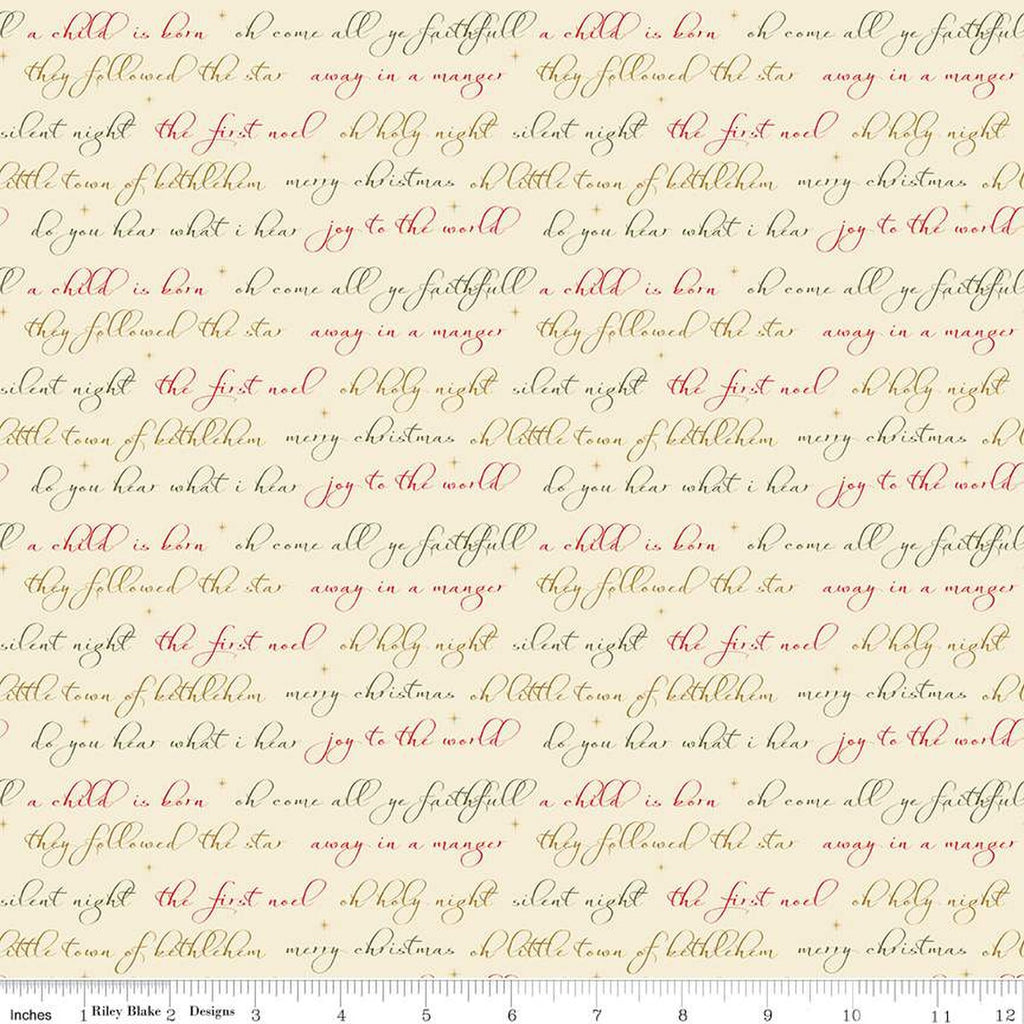 a child is born oh come all ye faithfull a child is born oh come all ye faithful
they followed the star away in a manger they followed the star away in a manger
silent night the first noel oh holy night silent night the first noel oh holy night
little town of bethlehem merry christmas oh little town of bethlehem merry christmas oh
do you hear what i hear joy to the world do you hear what i hear joy to the world
a child is born oh come all ye faithfull a child is born oh come all ye faithful
they followed the star away in a manger they followed the star away in a manger
silent night the first noel oh holy night silent night the first noel oh holy night
little town of bethlehem merry christmas oh little town of bethlehem merry christmas oh
do you hear what i hear joy to the world do you hear what i hear joy to the world
a child is born oh come all ye faithfull a child is born oh come all ye faithful
they followed the star away in a manger they followed the star away in a manger
silent night the first noel oh holy night silent night the first noel oh holy night
little town of bethlehem merry christmas oh little town of bethlehem merry christmas oh
do you hear what i hear joy to the world do you hear what i hear joy to the world
a child is born oh come all ye faithfull a child is born oh come all ye faithful
they followed the star away in a manger they followed the star away in a manger
silent night the first noel oh holy night silent night the first noel oh holy night
little town of bethlehem merry christmas oh little town of bethlehem merry christmas oh
Inches 1 Riley Blake 2 Designs 3 4 5 6 7 8 9 10 11 12